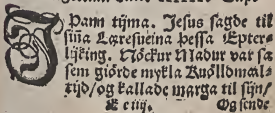 J Þann tijma. Jesus sagde til
sijna Læresueina þessa Epter-
lijking. Nockur Madur var sa
sem giörde mykla Kuölldmal-
tijd/og kallade marga til sijn/
& e iij. Og sende